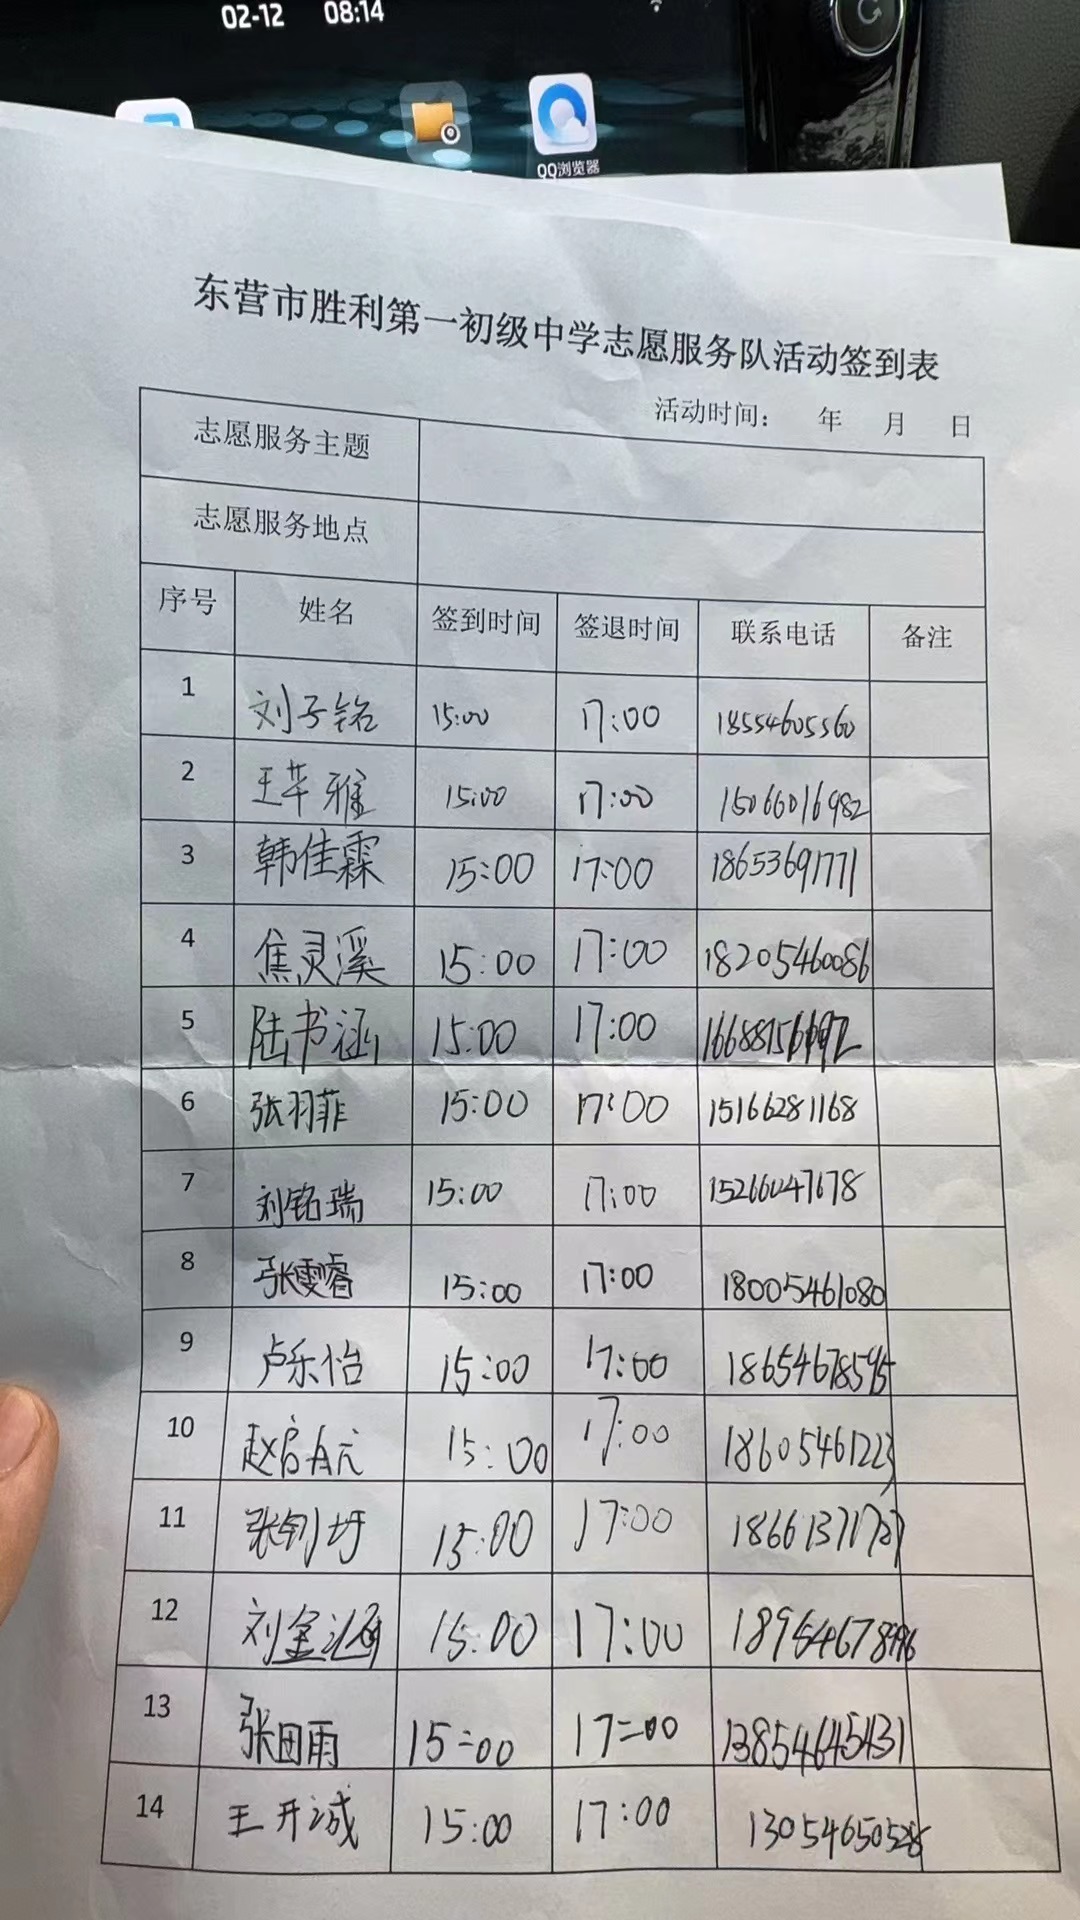 02-12 08:14
QQ浏览器
东营市胜利第一初级中学志愿服务队活动签到表
活动时间： 年 月 日
志愿服务主题
志愿服务地点
序号 姓名 签到时间 签退时间 联系电话 备注
1 刘子铭 15:00 17:00 18554605560
2 王芊雅 15:00 17:00 15066016982
3 韩佳霖 15:00 17:00 18653691771
4 焦灵溪 15:00 17:00 18205460086
5 陆书涵 15:00 17:00
6 张羽菲 15:00 17:00 15166281168
7 刘铭瑞 15:00 17:00 15266047678
8 张雯睿 15:00 17:00 18005461080
9 卢乐怡 15:00 17:00 18654678595
10 赵启元 15:00 17:00 18605461223
11 15:00 17:00
12 刘金涵 15:00 17:00
13 张田雨 15=00 17=00 13854645431
14 王开诚 15:00 17:00 13054650528